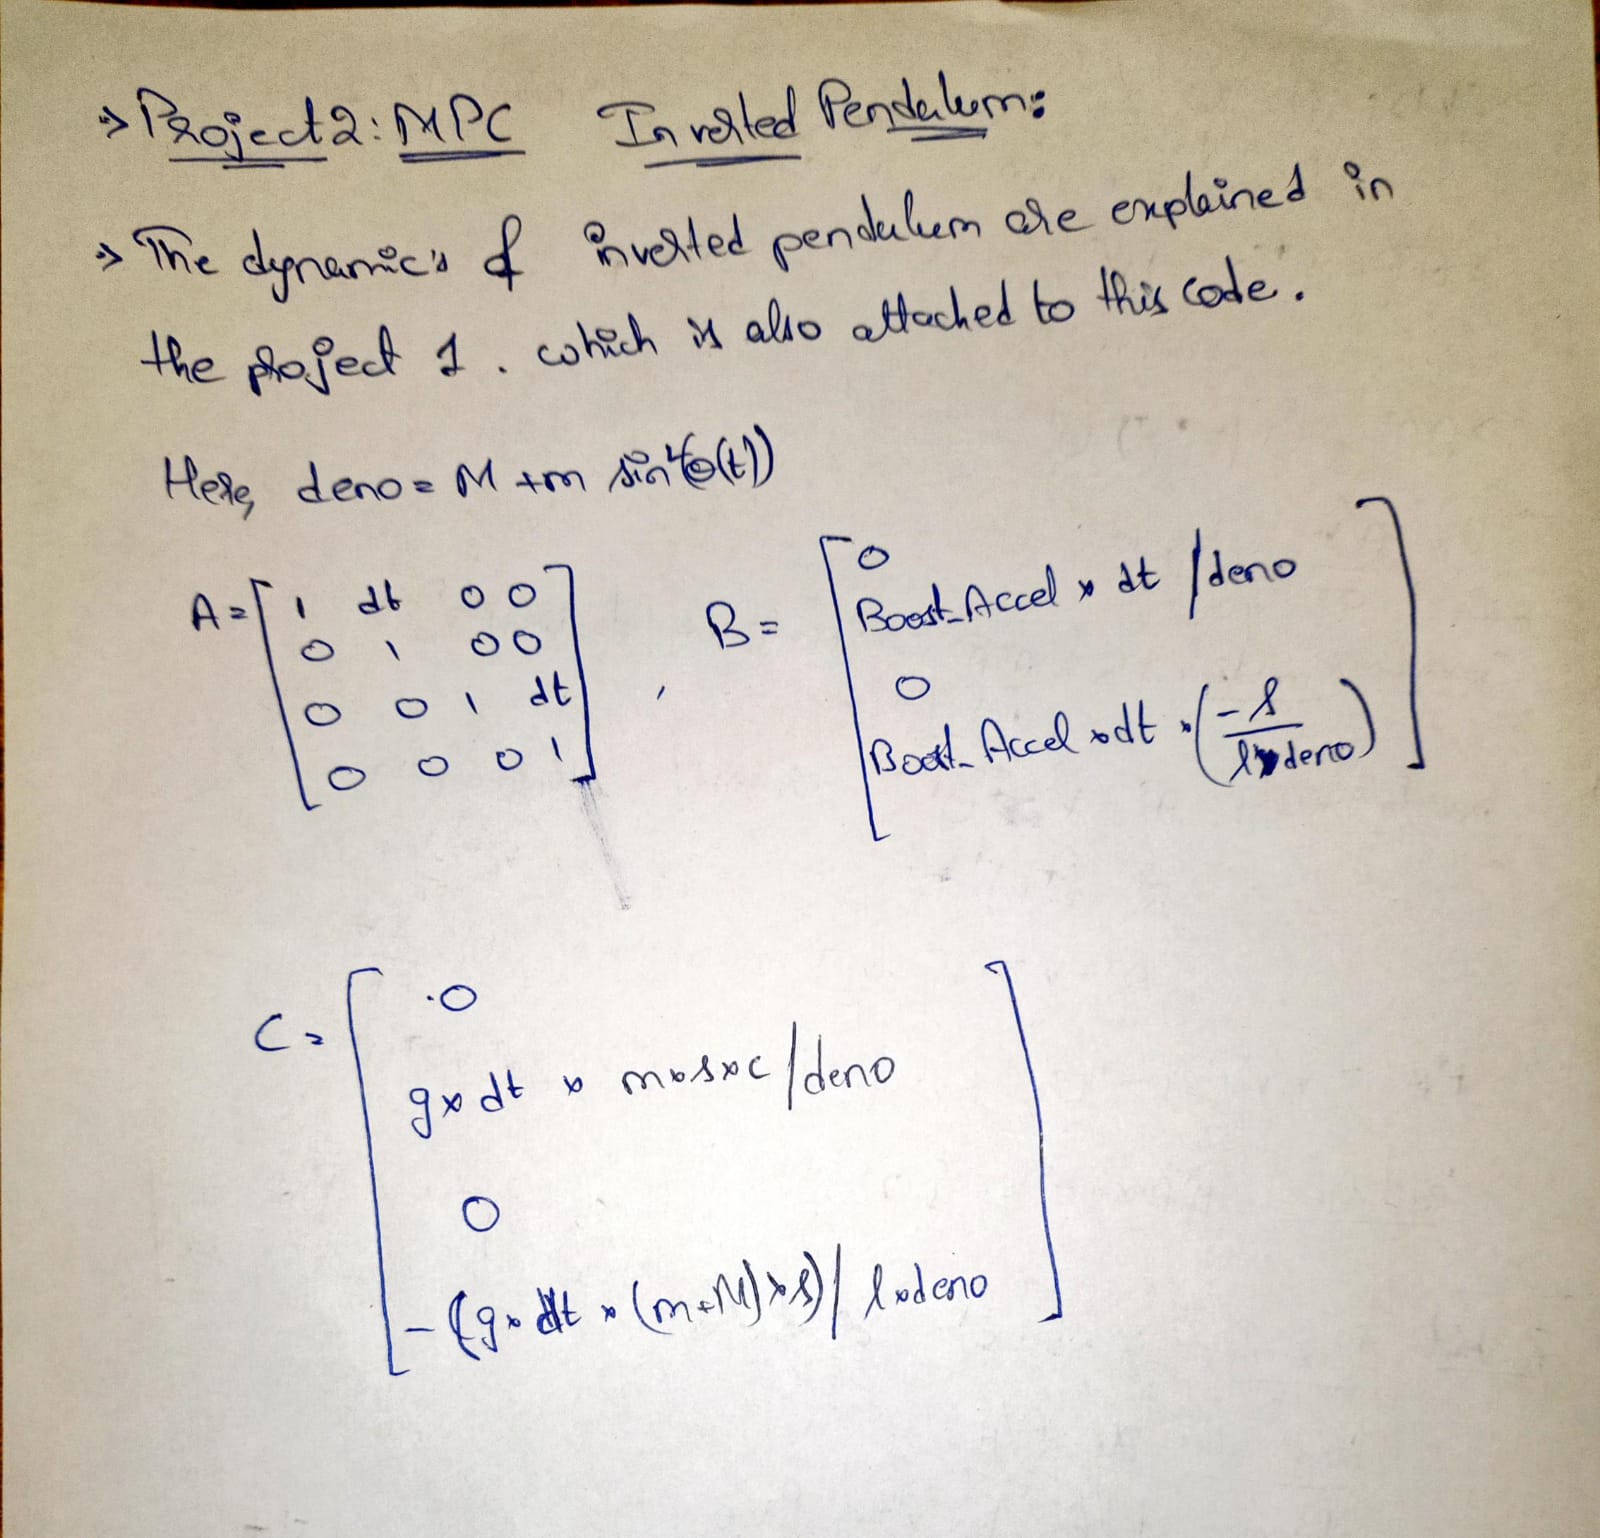 → Project 2: MPC Inverted Pendulum:
→ The dynamic's of inverted pendulum are explained in
the project 1. which is also attached to this code.
Here, deno = M + m sin²(θ(t))
A = [ 1 dt 0 0
0 1 0 0
0 0 1 dt
0 0 0 1 ]
, B = [ 0
Boost_Accel × dt / deno
0
Boost_Accel × dt × (-s / l × deno) ]
C = [ 0
g × dt × m × s × c / deno
0
- (g × dt × (m + M) × s) / l × deno ]